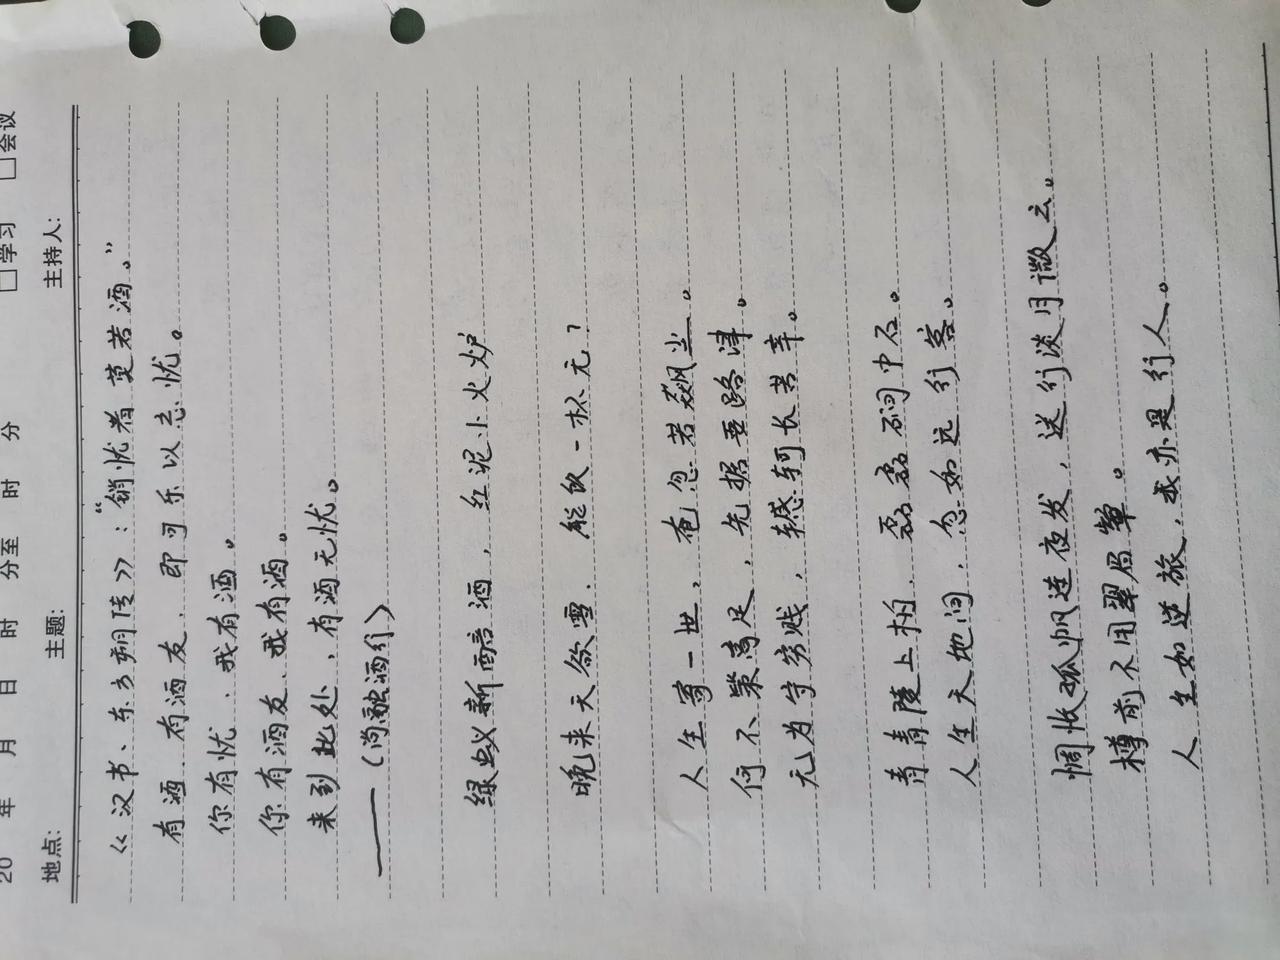 20 年 月 日 时 分至 时 分 □学习 □会议
地点: 主题: 主持人:
《汉书、东方朔传》:“销忧者莫若酒。”
有酒、有酒友、即可乐以忘忧。
你有忧、我有酒。
你有酒友、我有酒。
来到此处、有酒无忧。
——(尚融酒行)
绿蚁新醅酒,红泥小火炉
晚来天欲雪,能饮一杯无?
人生寄一世,奄忽若飙尘。
何不策高足,先据要路津。
无为守穷贱,轗轲长苦辛。
青青陵上柏,磊磊磵中石。
人生天地间,忽如远行客。
惆怅孤帆连夜发,送行淡月微云。
樽前不用翠眉颦。
人生如逆旅,我亦是行人。